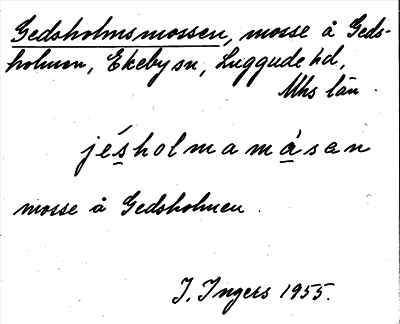 Gedsholmsmossen, mosse å Geds-
holmen, Ekeby sn, Luggude hd,
Mhs län.
jésholmamåsan
mosse å Gedsholmen.
I. Ingers 1955.